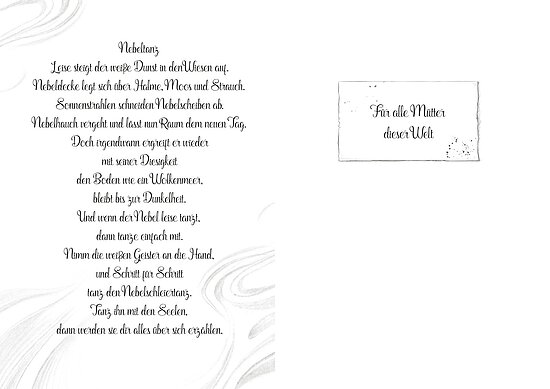 Nebeltanz
Leise steigt der weiße Dunst in den Wiesen auf.
Nebeldecke legt sich über Halme, Moos und Strauch.
Sonnenstrahlen schneiden Nebelscheiben ab.
Nebelhauch vergeht und lässt nun Raum dem neuen Tag.
Doch irgendwann ergreift er wieder
mit seiner Diesigkeit
den Boden wie ein Wolkenmeer,
bleibt bis zur Dunkelheit.
Und wenn der Nebel leise tanzt,
dann tanze einfach mit.
Nimm die weißen Geister an die Hand,
und Schritt für Schritt
tanz den Nebelschleiertanz.
Tanz ihn mit den Seelen,
dann werden sie dir alles über sich erzählen.
Für alle Mütter
dieser Welt